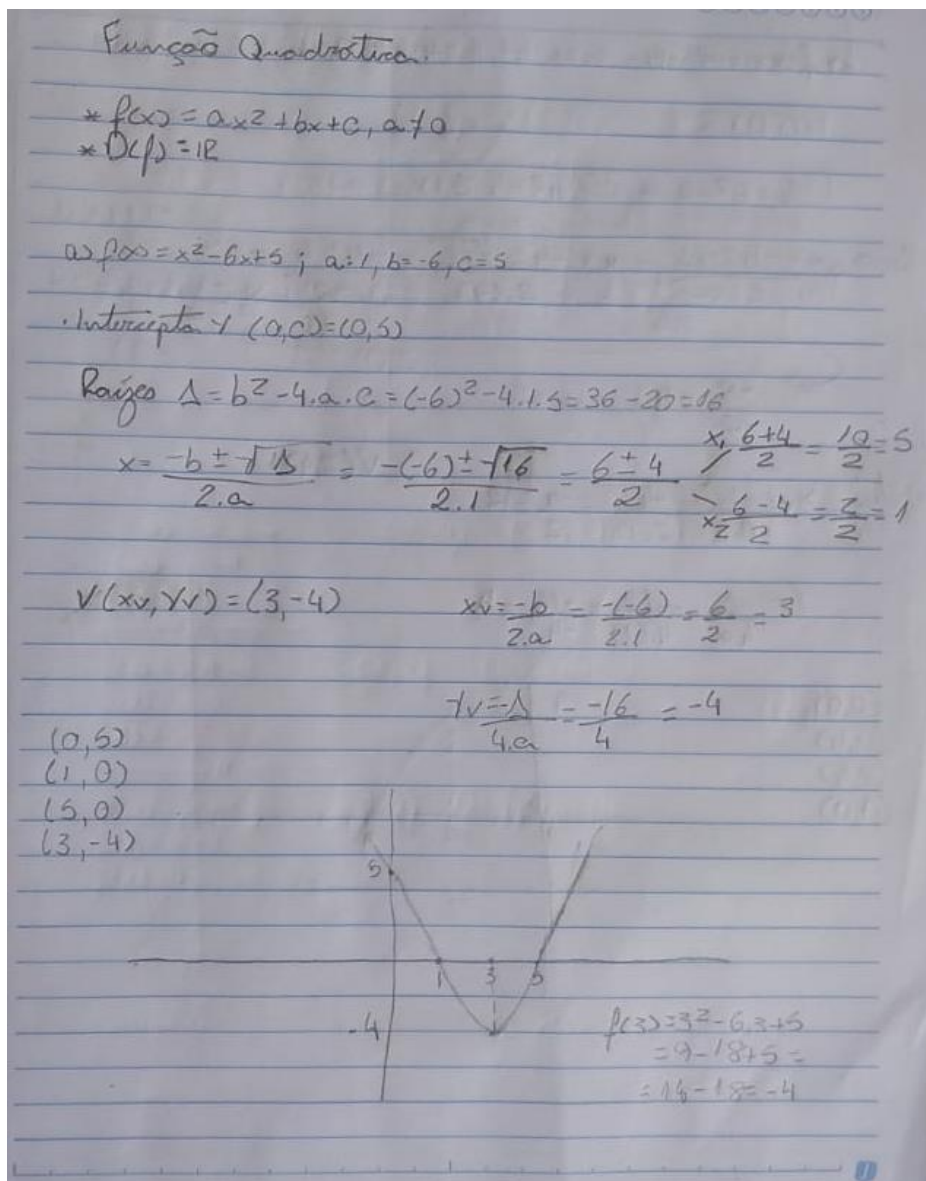 Função Quadrática.
* f(x) = ax² + bx + c, a ≠ 0
* D(f) = IR
a) f(x) = x² - 6x + 5 ; a = 1, b = -6, c = 5
• Intercepta Y (0, c) = (0, 5)
Raízes Δ = b² - 4.a.c = (-6)² - 4.1.5 = 36 - 20 = 16
x = (-b ± √Δ)/2.a = (-(-6) ± √16)/2.1 = (6 ± 4)/2
x₁ (6+4)/2 = 10/2 = 5
x₂ (6-4)/2 = 2/2 = 1
V(xv, Yv) = (3, -4)
xv = -b/2.a = -(-6)/2.1 = 6/2 = 3
Yv = -Δ/4.a = -16/4 = -4
(0, 5)
(1, 0)
(5, 0)
(3, -4)
5
1 3 5
-4
f(3) = 3² - 6.3 + 5
= 9 - 18 + 5 =
= 14 - 18 = -4